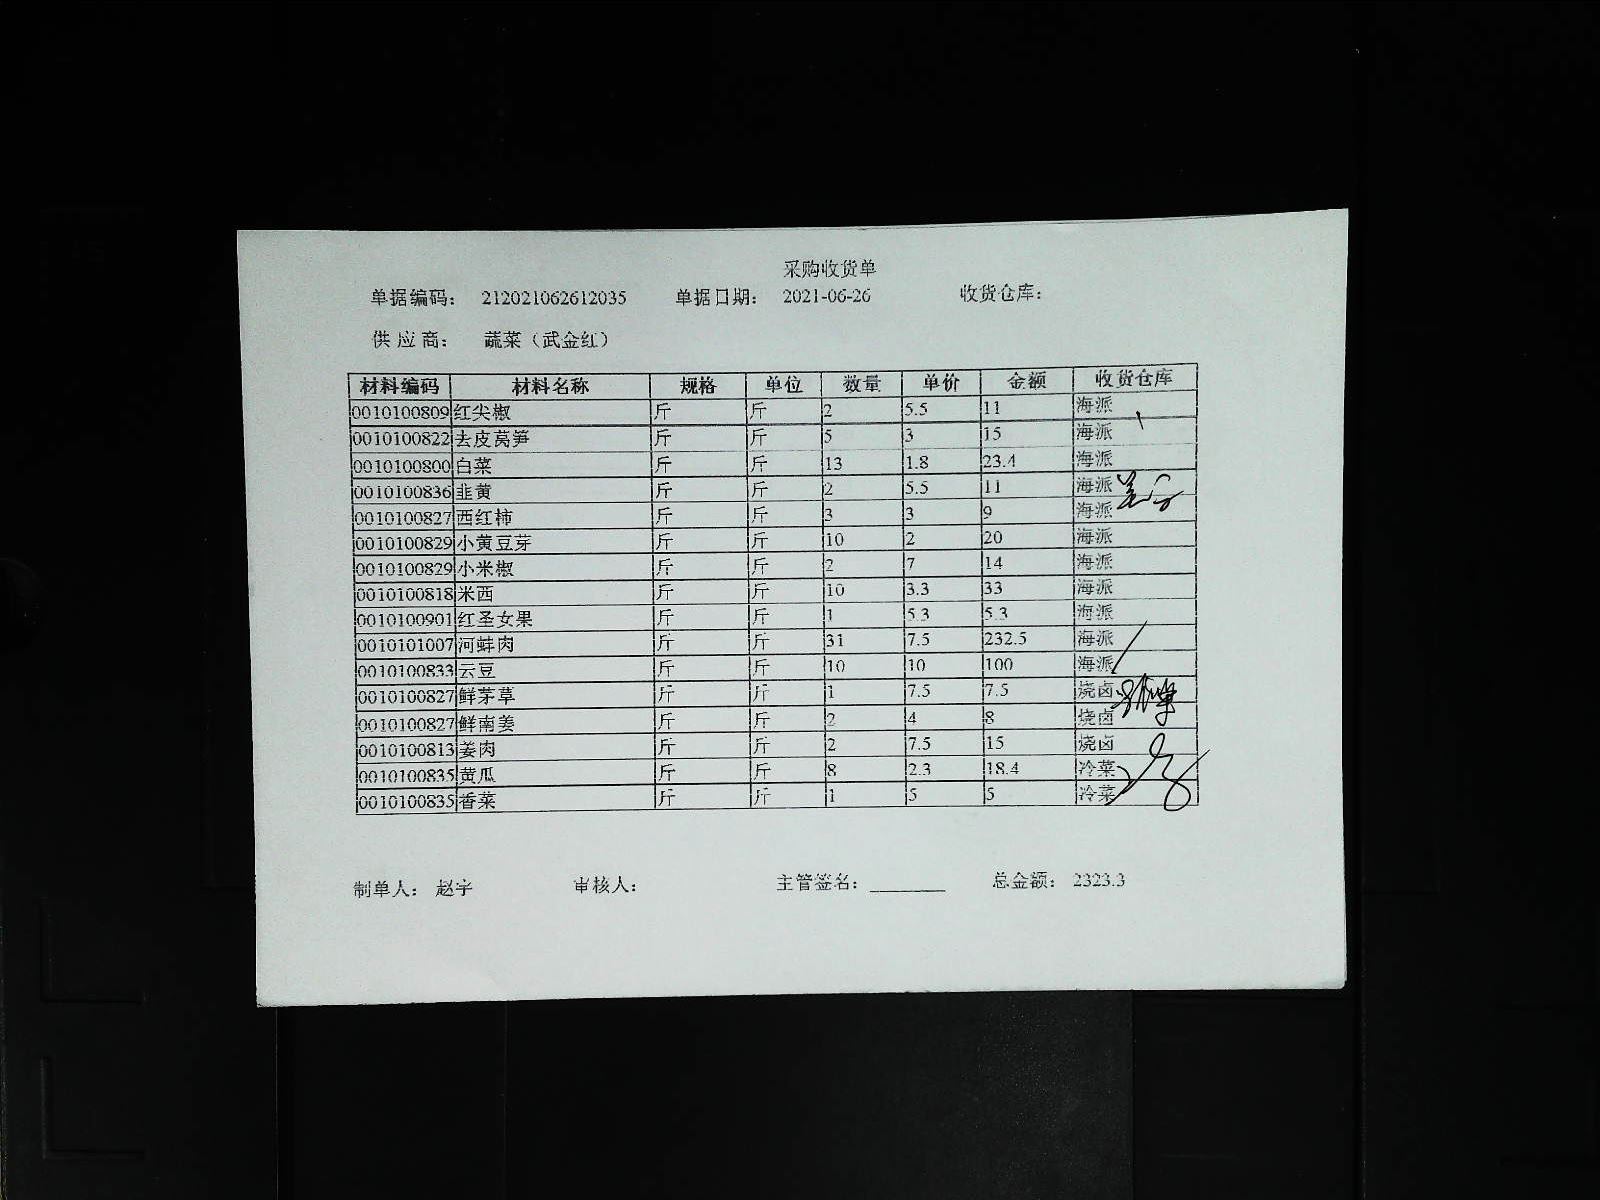 采购收货单
单据编码： 212021062612035 单据日期： 2021-06-26 收货仓库：
供 应 商： 蔬菜（武金红）
材料编码 材料名称 规格 单位 数量 单价 金额 收货仓库
0010100809 红尖椒 斤 斤 2 5.5 11 海派
0010100822 去皮莴笋 斤 斤 5 3 15 海派
0010100800 白菜 斤 斤 13 1.8 23.4 海派
0010100836 韭黄 斤 斤 2 5.5 11 海派
0010100827 西红柿 斤 斤 3 3 9 海派
0010100829 小黄豆芽 斤 斤 10 2 20 海派
0010100829 小米椒 斤 斤 2 7 14 海派
0010100818 米西 斤 斤 10 3.3 33 海派
0010100901 红圣女果 斤 斤 1 5.3 5.3 海派
0010101007 河蚌肉 斤 斤 31 7.5 232.5 海派
0010100833 云豆 斤 斤 10 10 100 海派
0010100827 鲜茅草 斤 斤 1 7.5 7.5 烧卤
0010100827 鲜南姜 斤 斤 2 4 8 烧卤
0010100813 姜肉 斤 斤 2 7.5 15 烧卤
0010100835 黄瓜 斤 斤 8 2.3 18.4 冷菜
0010100835 香菜 斤 斤 1 5 5 冷菜
制单人： 赵宇 审核人： 主管签名： 总金额： 2323.3